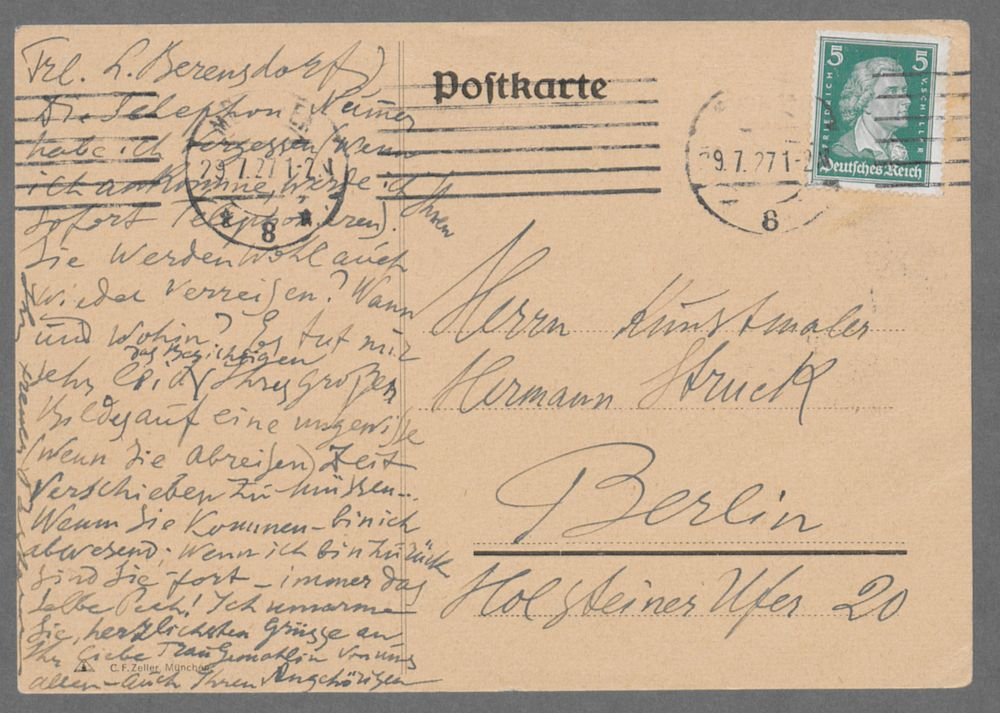 Frl. L. Berensdorf)
Die Telephon Numer
habe ich vergessen (wenn
ich ankomme, werde ich Ihnen
sofort Telephoniren).
Sie werden wohl auch
wieder verreisen? Wann
und wohin? Es tut mir
das Besichtigen
sehr leid Ihres großen
Bildes auf eine ungewisse
(wenn Sie abreisen) Zeit
verschieben zu müssen -.
Wenn Sie Kommen - bin ich
abwesend; wenn ich bin zurück
sind Sie fort - immer das
selbe Pech! Ich umarme
Sie, herzlichsten Grüsse an
Ihr liebe Frau Gemahlin von uns
allen - auch Ihren Angehörigen
Ihr treuer
C. F. Zeller, München
Postkarte
29.7.27 1-2 N
* 8 *
29.7.27 1-2 N
8
5 5
FRIEDRICH V. SCHILLER
Deutsches Reich
Herrn Kunstmaler
Hermann Struck
Berlin
Holsteiner Ufer 20